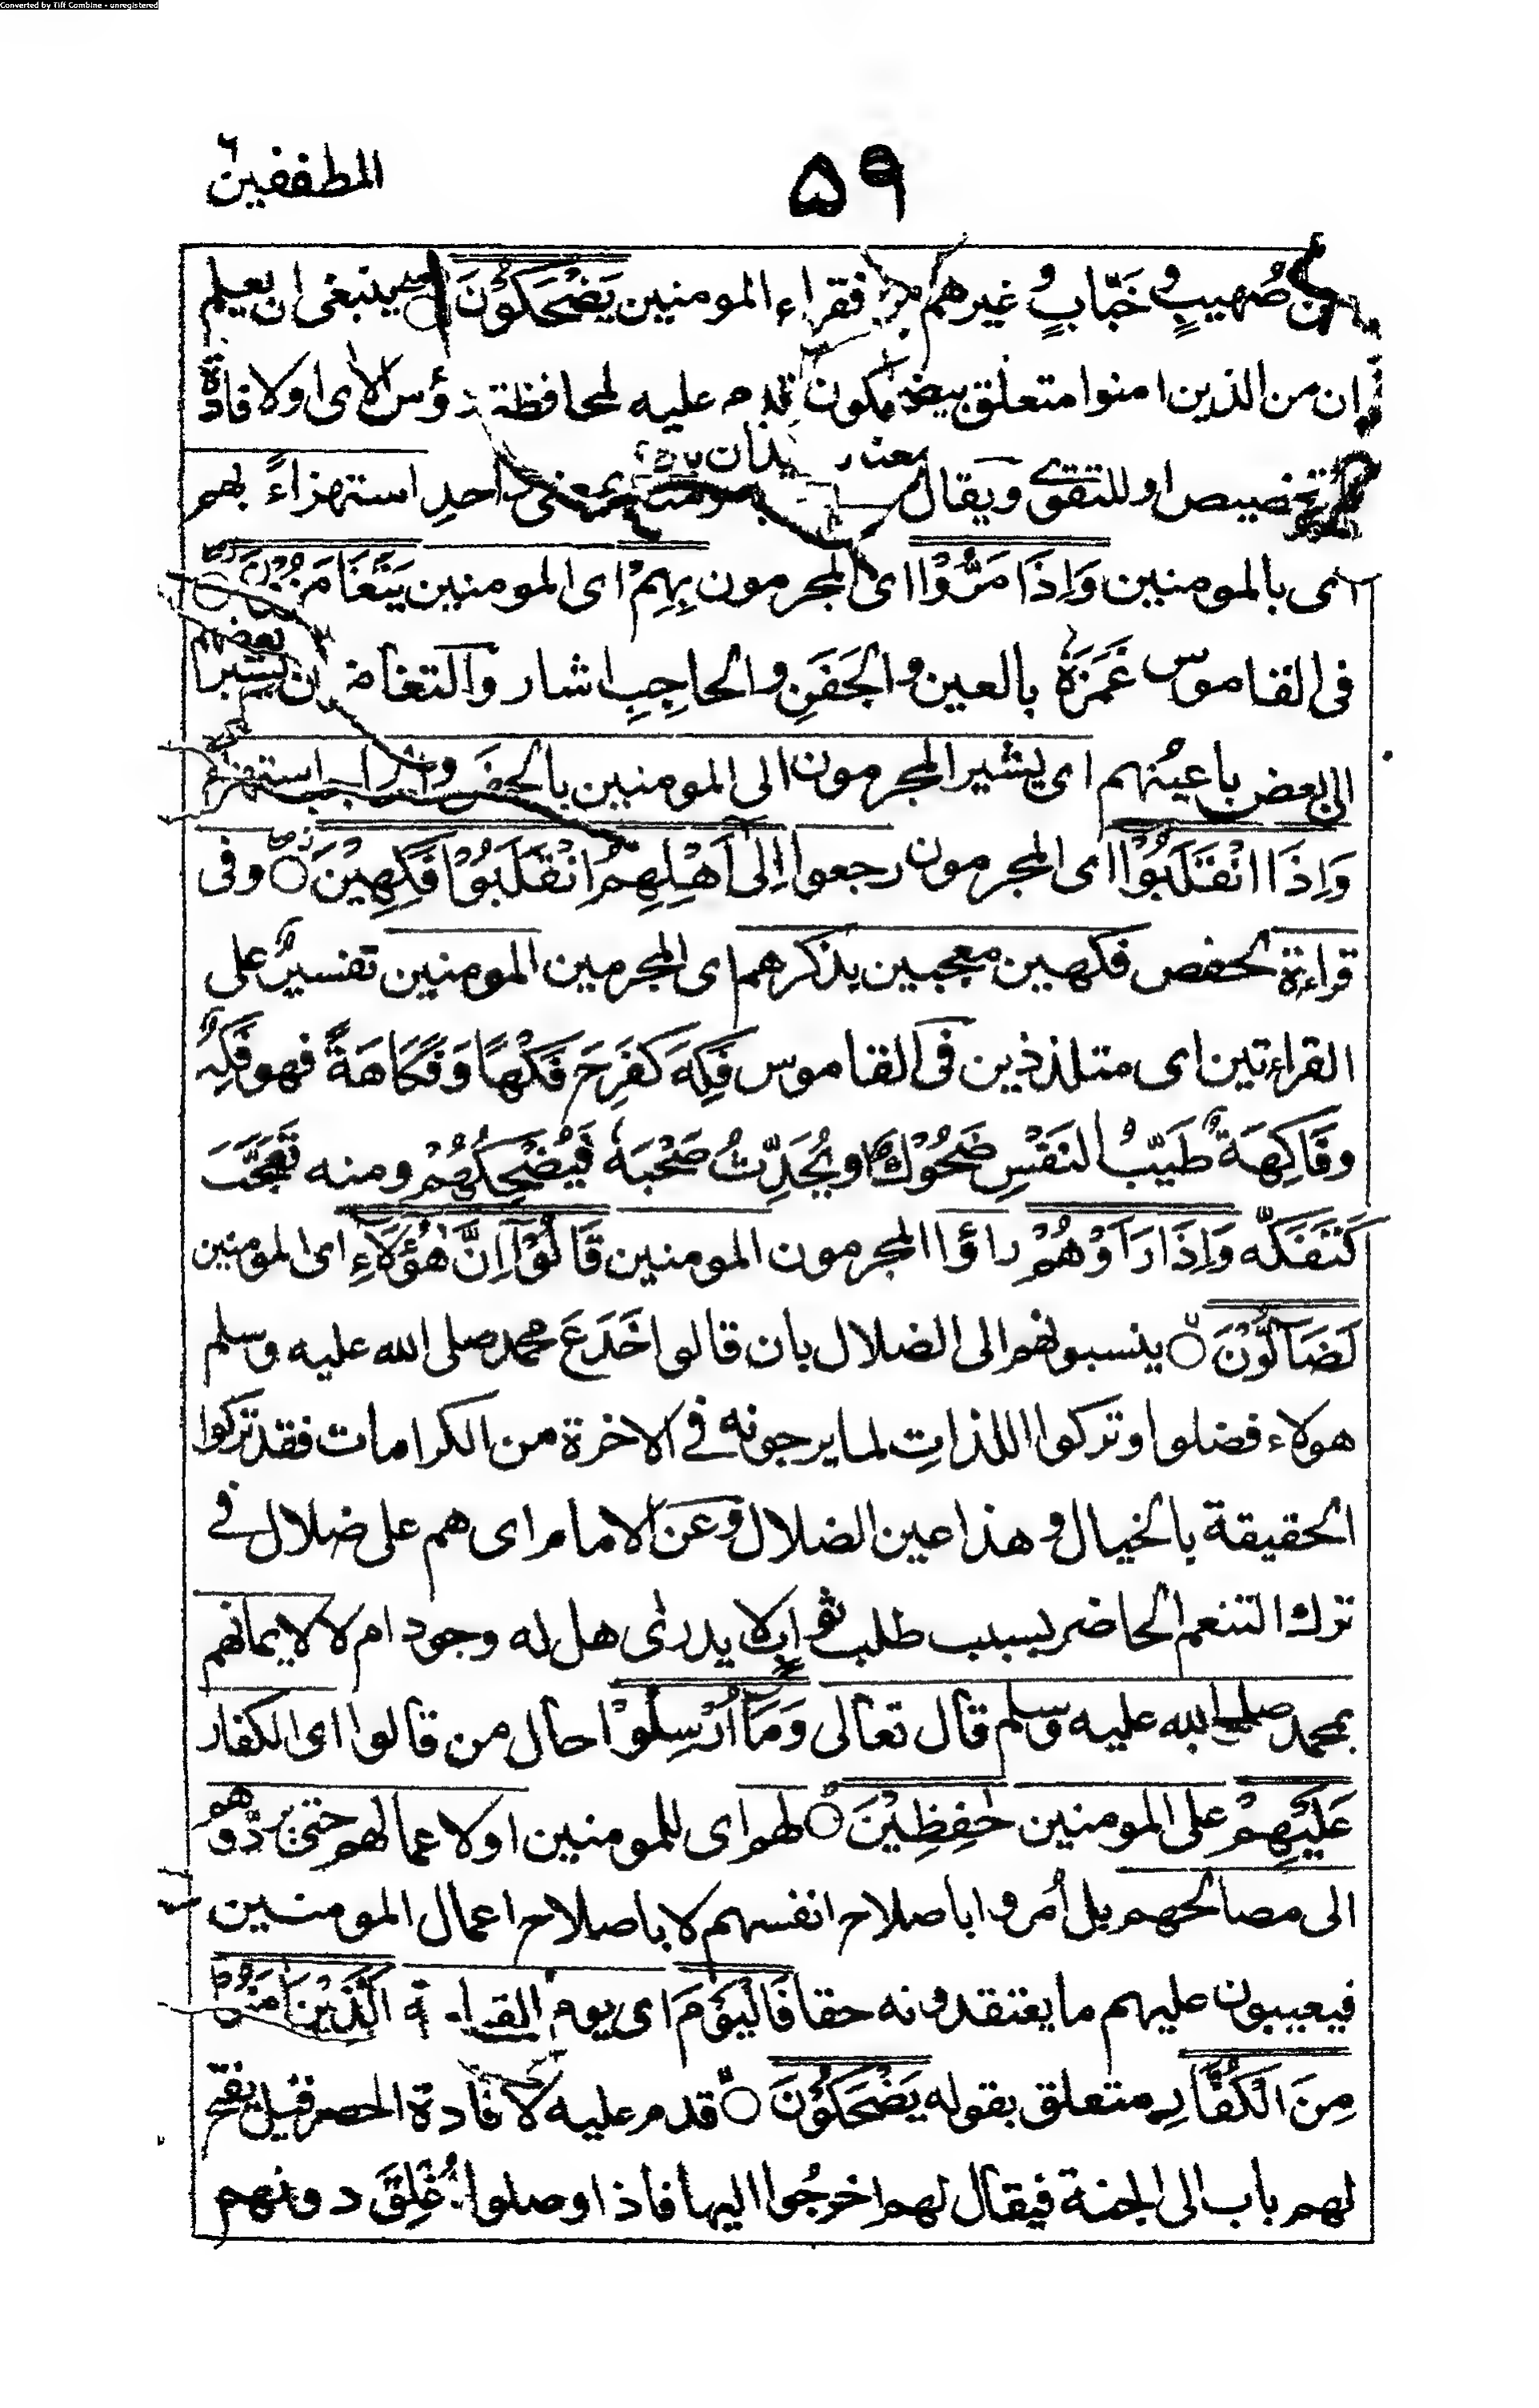 Converted by Tiff Combine - unregistered
المطففين ٥٩
صُهيبٍ و خَبّابٍ و غيرهم من فقراء المومنين يَضْحَكُوْنَ ينبغى ان يعلم
ان من الذين امنوا متعلق بيضحكون قدم عليه لمحافظة رؤس الاى اولا فادة
التخصيص او للتقوى ويقال بمعنى واحدٍ استهزاءً بهم
اى بالمومنين وَاِذَا مَرُّوْا اى المجرمون بِهِمْ اى المومنين يَتَغَامَزُوْنَ
فى القاموس غَمَزَهٗ بالعين و الجَفَنِ و الحاجِبِ اشار والتغامز ان يشير بعضهم
الى بعض باعينهم اى يشير المجرمون الى المومنين بالجفن والحاجب استهزاء
وَاِذَا انْقَلَبُوْا اى المجرمون رجعوا اِلٰٓى اَهْلِهِمُ انْقَلَبُوْا فٰكِهِيْنَ وفى
قراءة لحفص فكهين معجبين بذكرهم اى المجرمين المومنين تفسيرٌ على
القراءتين اى متلذذين فى القاموس فَكِهَ كَفَرِحَ فَكَهًا وَفُكَاهَةً فهو فَكِهٌ
وفَاكِهَةٌ طَيّبُ النَفَسِ ضَحُوْكٌ او يُحَدِّثُ صَحْبَهٗ فَيُضْحِكُهُمْ ومنه تَعَجَّبَ
كَتَفَكَّه وَاِذَا رَاَوْهُمْ راؤا المجرمون المومنين قَالُوْٓا اِنَّ هٰٓؤُلَآءِ اى المومنين
لَضَآلُّوْنَ ينسبونهم الى الضلال بان قالوا خَدَعَ محمد صلى الله عليه وسلم
هولاء فضلوا وتركوا اللذاتِ لما يرجونه فى الاخرة من الكرامات فقد تركوا
الحقيقة بالخيال و هذا عين الضلال وعن الامام اى هم على ضلال فى
ترك التنعم الحاضر بسبب طلب ثوابٍ لا يدرٰى هل له وجود ام لا لايمانهم
بمحمد صلى الله عليه وسلم قال تعالى وَمَآ اُرْسِلُوْا حال من قالوا اى الكفار
عَلَيْهِمْ على المومنين حٰفِظِيْنَ لهم اى للمومنين اولا عمالهم حتى يردّوهم
الى مصالحهم بل اُمروا باصلاح انفسهم لا باصلاح اعمال المومنين
فيعيبون عليهم ما يعتقدونه حقا فَالْيَوْمَ اى يوم القيامة الَّذِيْنَ اٰمَنُوْا
مِنَ الْكُفَّارِ متعلق بقوله يَضْحَكُوْنَ قدم عليه لا فادة الحصر قيل يفتح
لهم باب الى الجنة فيقال لهم اخرجُوا اليها فاذا وصلوا غُلِقَ دونهم